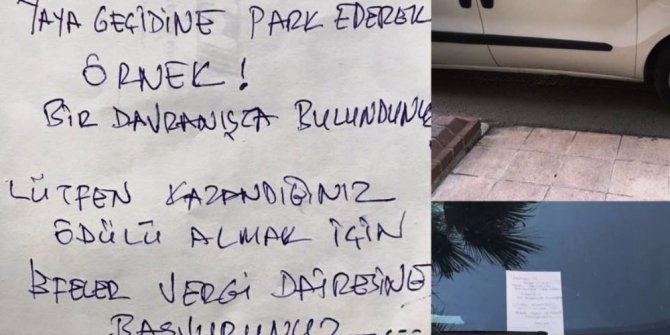 YAYA GEÇİDİNE PARK EDEREK
ÖRNEK!
BİR DAVRANIŞTA BULUNDUNUZ
LÜTFEN KAZANDIĞINIZ
ÖDÜLÜ ALMAK İÇİN
EFELER VERGİ DAİRESİNE
BAŞVURUNUZ